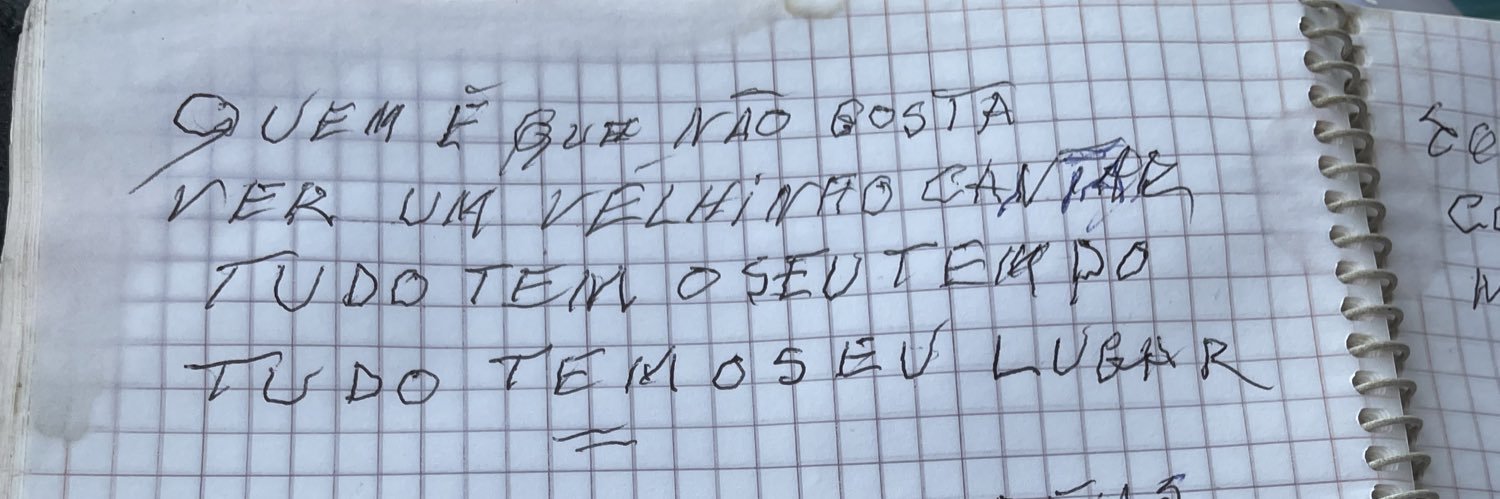 QUEM É QUE NÃO GOSTA
VER UM VÉLHINHO CANTAR
TUDO TEM O SEU TEMPO
TUDO TEM O SEU LUGAR